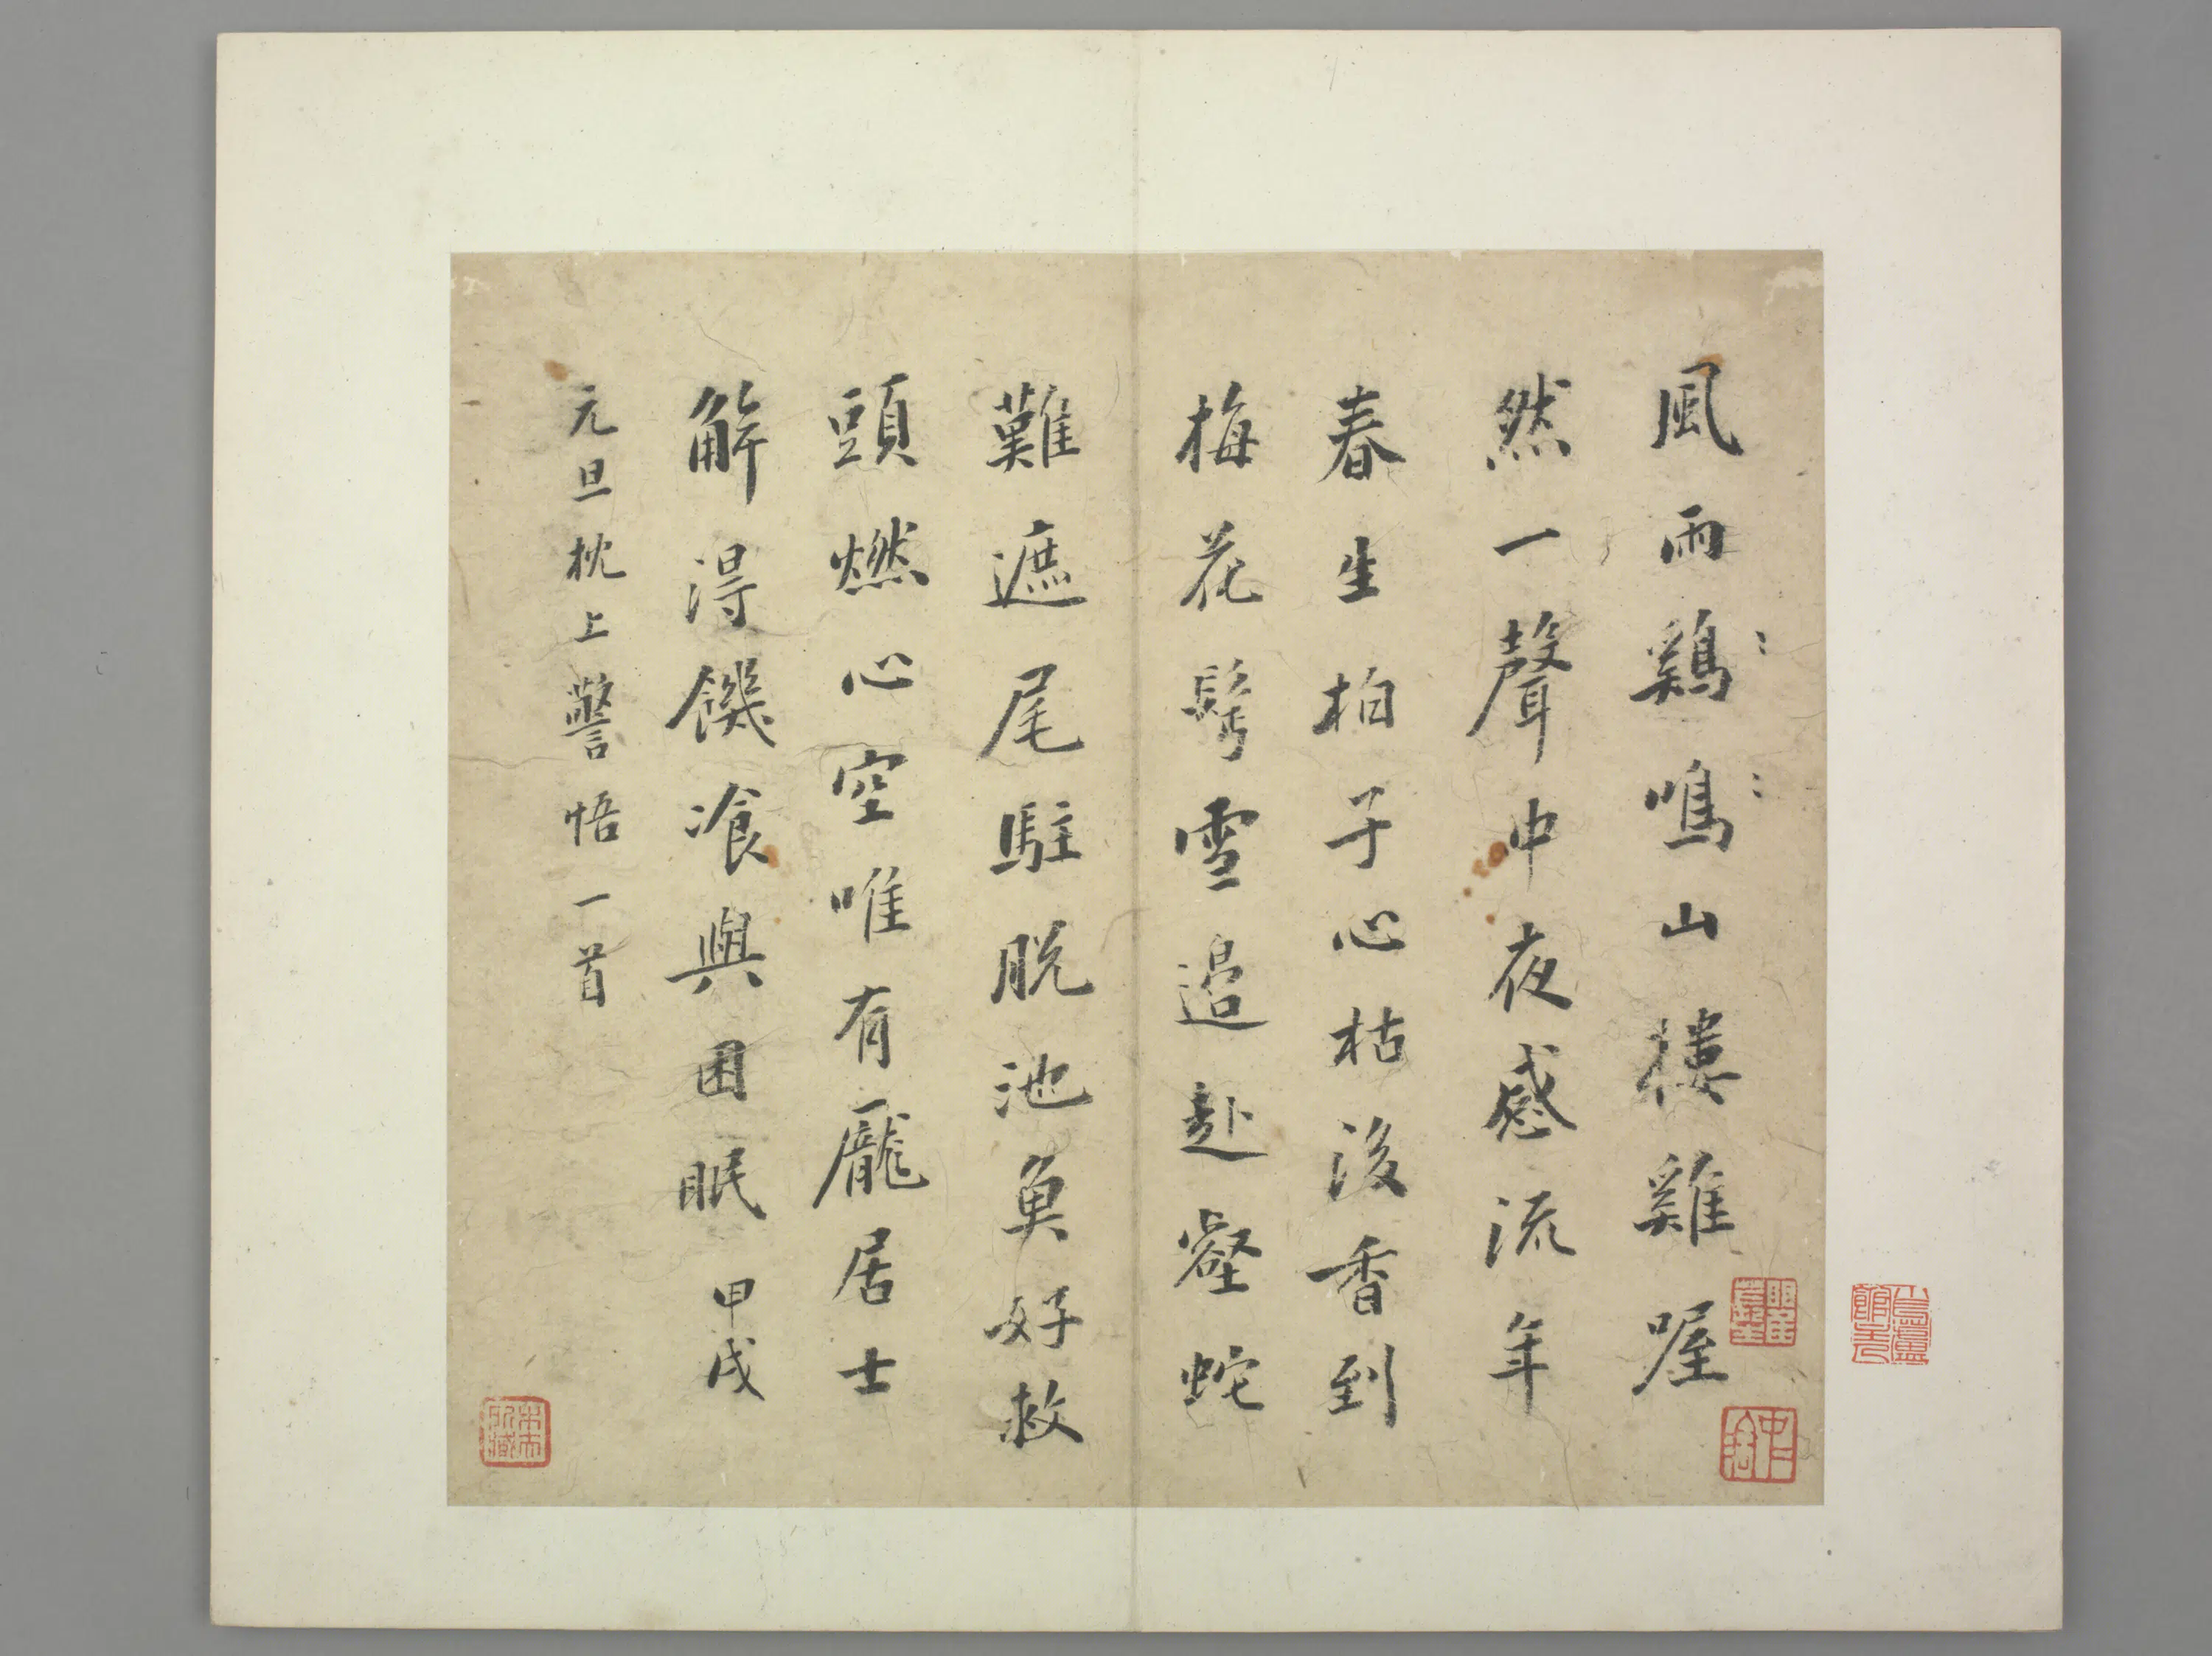 風雨鷄鳴山樓雞喔
然一聲中夜感流年
春生柏子心枯後香到
梅花髩雪邊赴壑蛇
難遮尾駐脱池魚好救
頭燃心空唯有龐居士
解得饑飡與困眠 甲戌
元旦枕上警悟一首